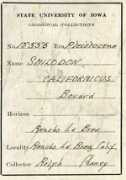 STATE UNIVERSITY OF IOWA
GEOLOGICAL COLLECTIONS
Pleistocene
Name SMILODON
CALIFORNICUS
Bovard
Horizon
Rancho La Brea
Locality Rancho La Brea, Calif.
Collector Ralph